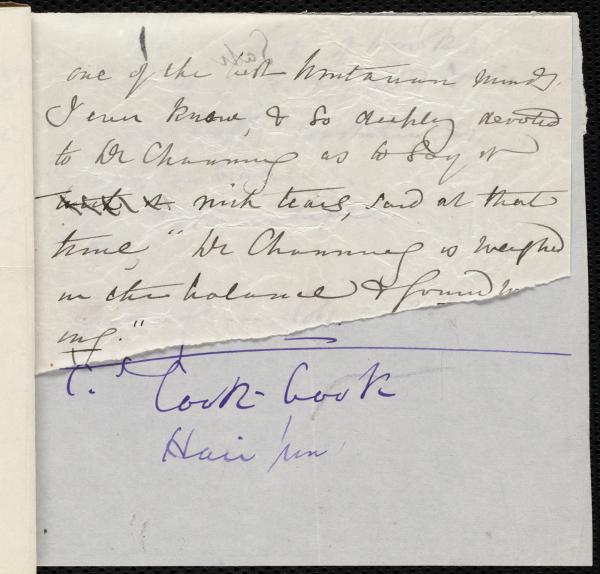 one of the best Unitarian minds
I ever knew, & so deeply devoted
to Dr Channing as to say it
with tears, said at that
time, "Dr Channing is weighed
in the balance & found w
ing."
Cook-Book
Hair